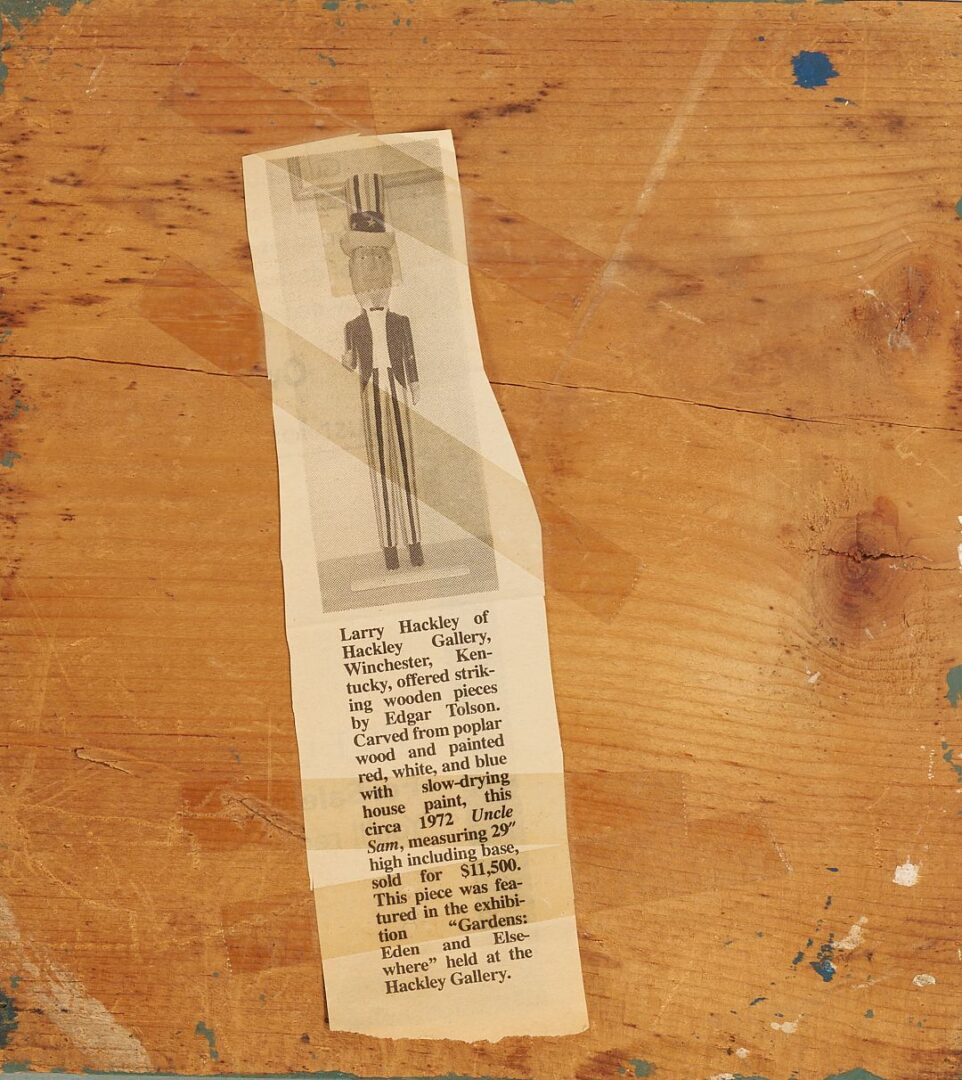 Larry Hackley of
Hackley Gallery,
Winchester, Ken-
tucky, offered strik-
ing wooden pieces
by Edgar Tolson.
Carved from poplar
wood and painted
red, white, and blue
with slow-drying
house paint, this
circa 1972 Uncle
Sam, measuring 29″
high including base,
sold for $11,500.
This piece was fea-
tured in the exhibi-
tion “Gardens:
Eden and Else-
where” held at the
Hackley Gallery.